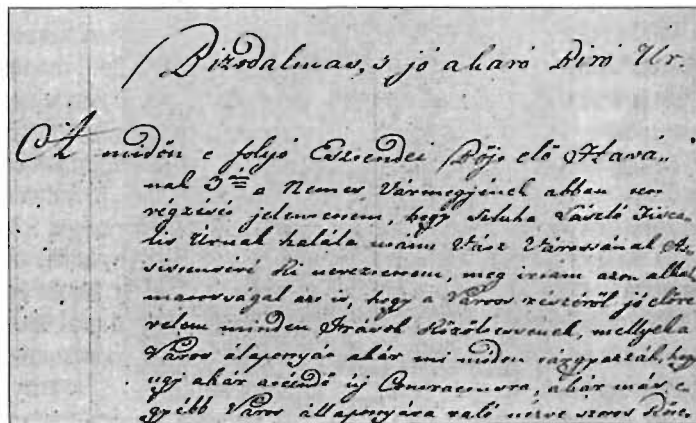 Bizodalmas, s jó akaró Biró Úr.
A midőn e folyó Esztendei Böjt elő Havá„
nak 3án a Nemes Vármegyének abban
végzését jelentettem, hogy Sluha László Fisca„
lis Úrnak halála miatt Vátz Várossának As„
sistensévé ki neveztettem, meg irtam azon alkal„
matossággal azt is, hogy a Város részéről jó előre
velem minden Irások közöltessenek, mellyek a
Város álapotyát akár mi módon tárgyazzák, hogy
ugy akár ajánlandó új Contractusra, akár más e„
gyébb Város állapotyára való nézve